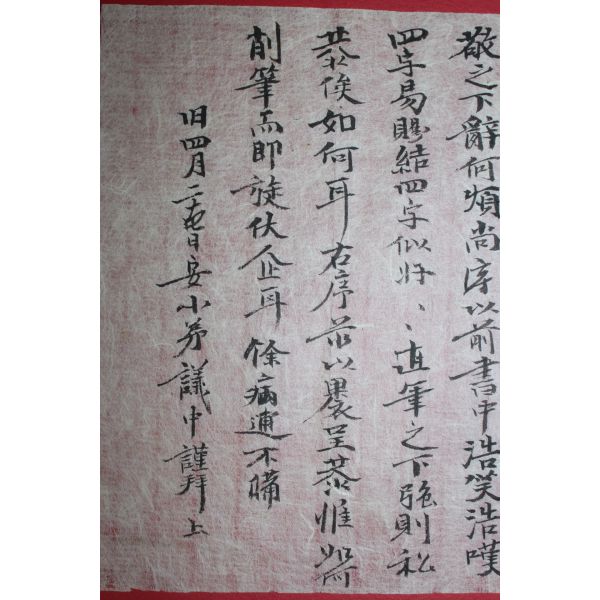 敬之下辭何煩尚序以前書中浩笑浩嘆
四字易賜結四字似好、、直筆之下強則私
恭俟如何耳右序前以裹呈恭惟
削筆而即旋伏企耳餘病逋不備
旧四月二十七日安小弟議中謹拜上